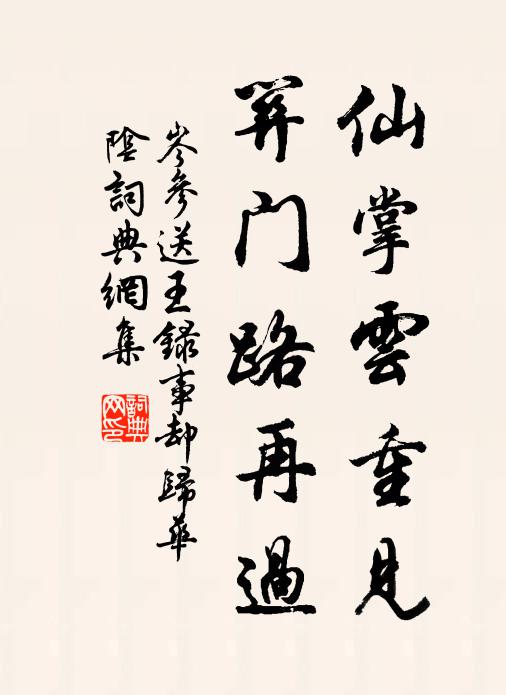 仙掌雲重見
關門路再過
岑參送王録事却歸華
陰詞典網集
詞典
网印